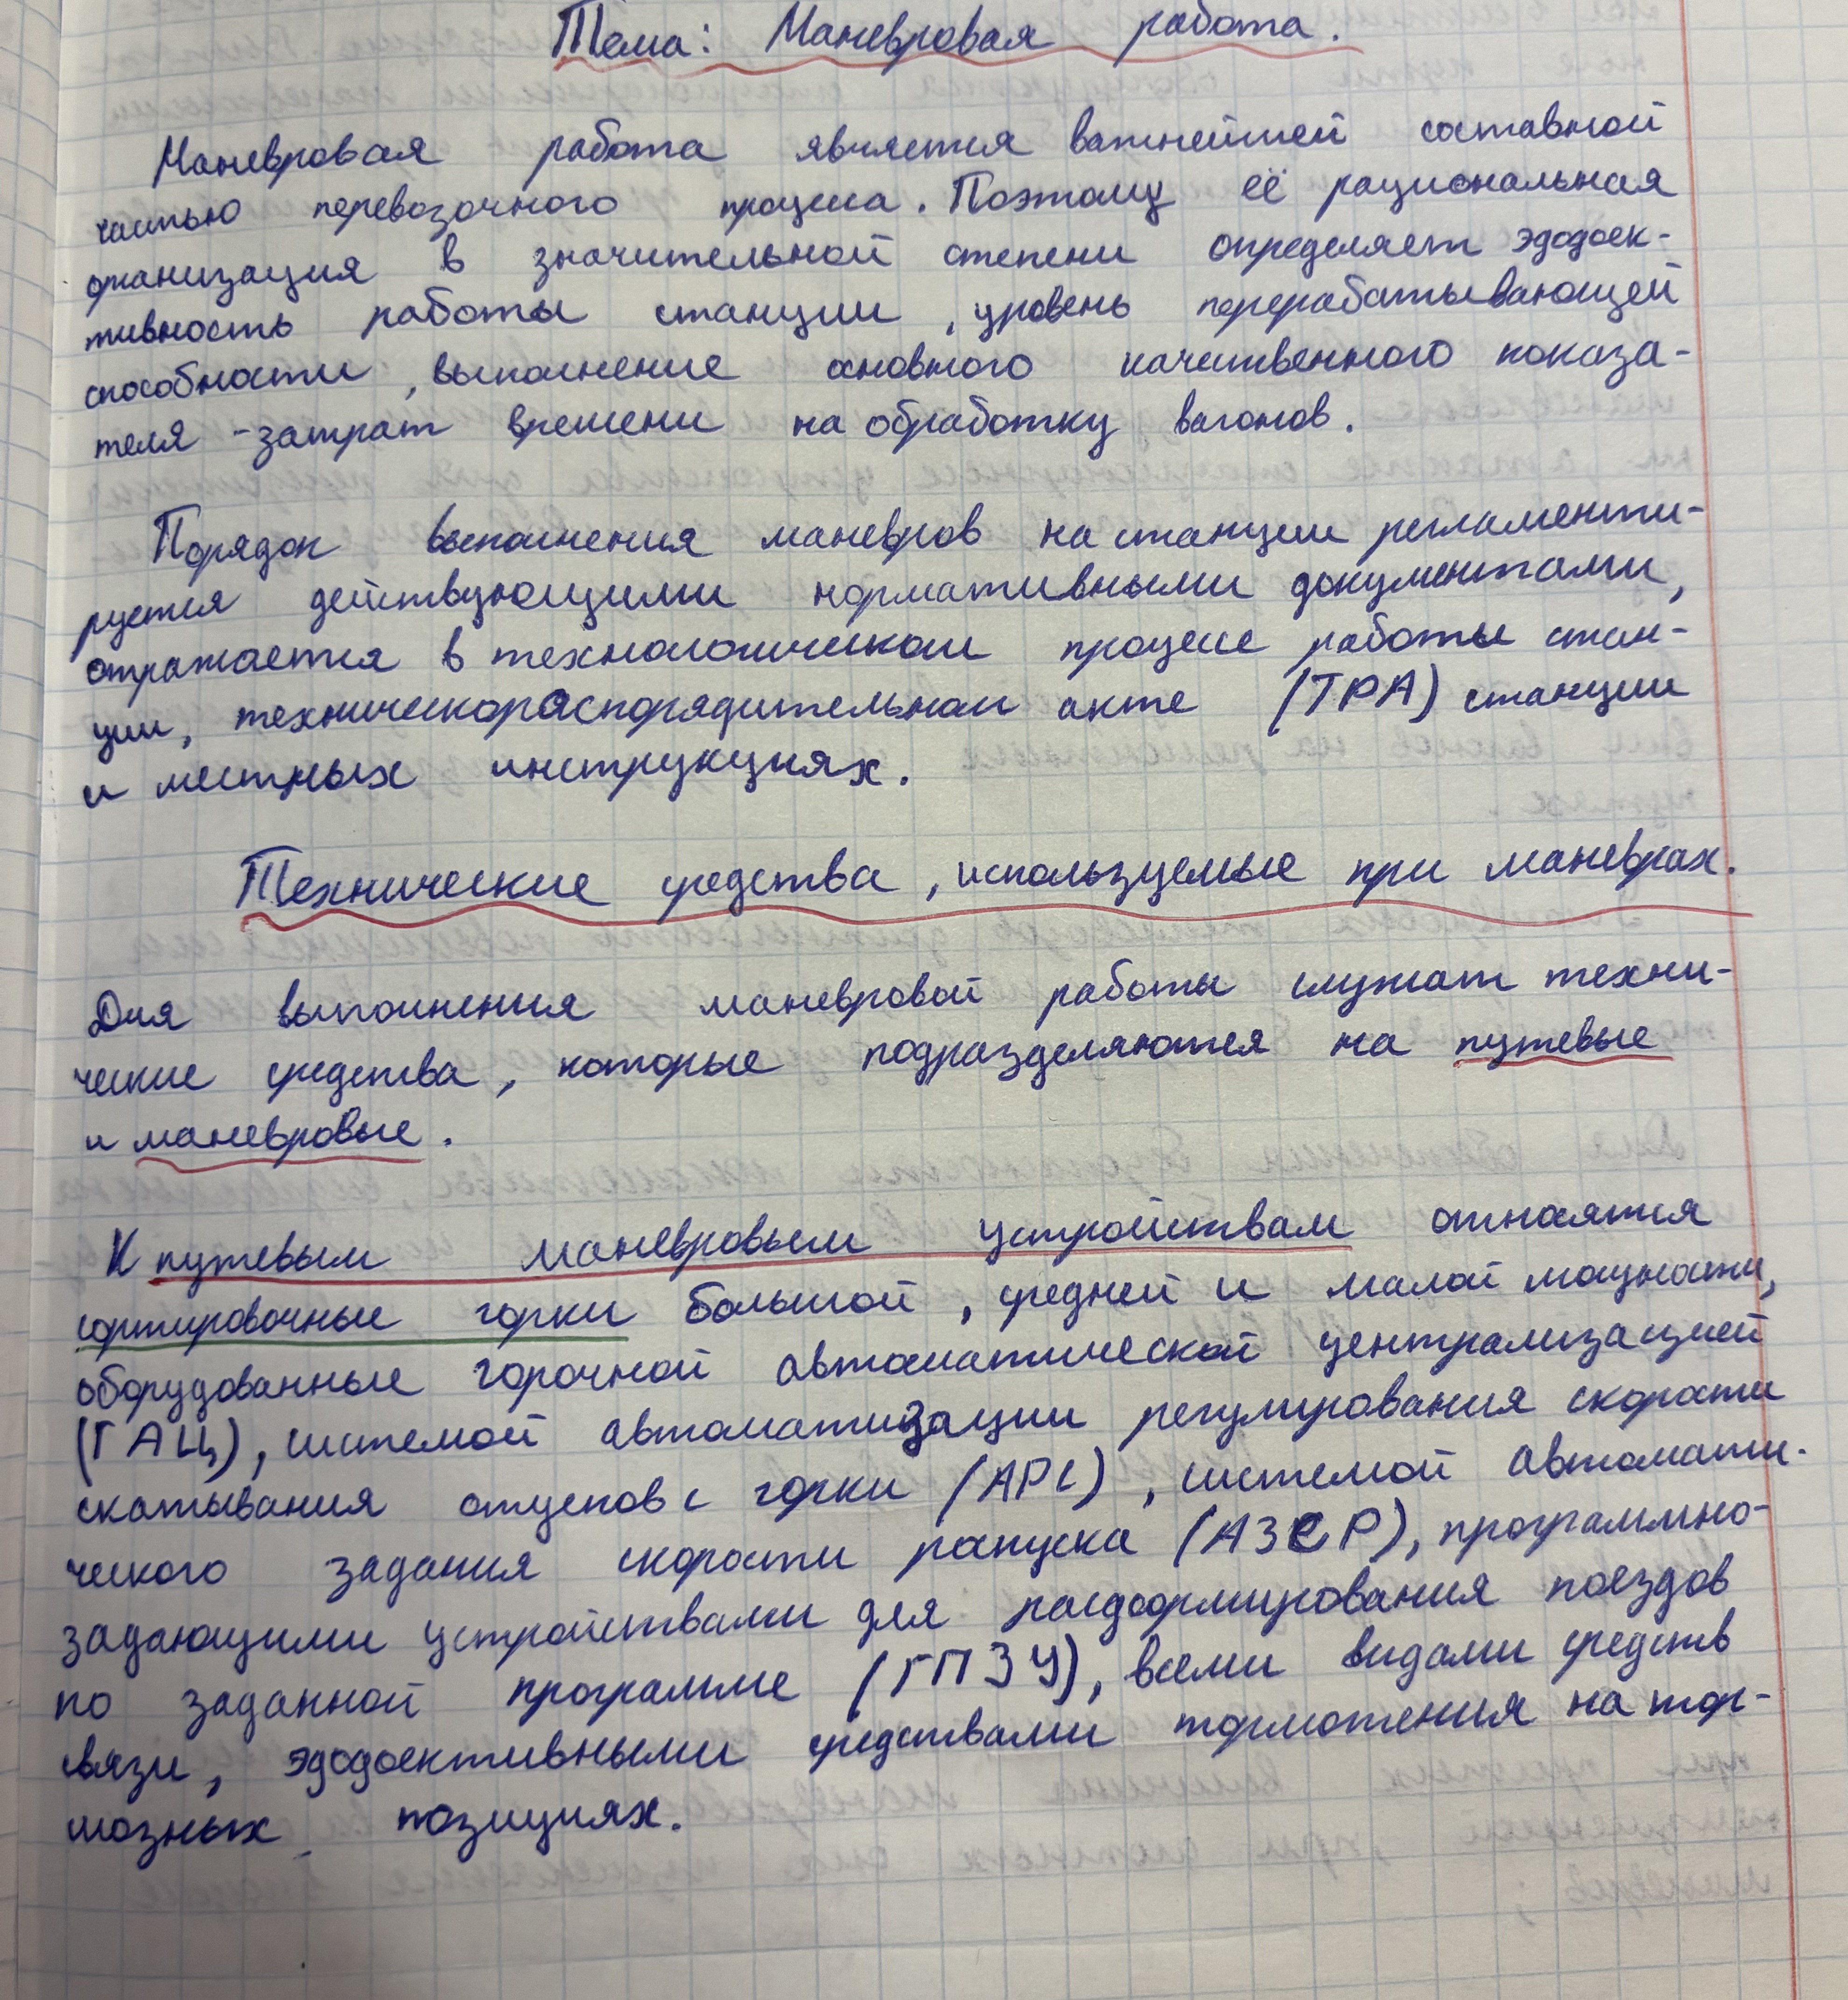 Тема: Маневровая работа.
Маневровая работа является важнейшей составной
частью перевозочного процесса. Поэтому её рациональная
организация в значительной степени определяет эффек-
тивность работы станции, уровень перерабатывающей
способности, выполнение основного качественного показа-
теля - затрат времени на обработку вагонов.
Порядок выполнения маневров на станции регламенти-
руется действующими нормативными документами,
отражается в технологическом процессе работы стан-
ции, техническораспорядительном акте (ТРА) станции
и местных инструкциях.
Технические средства, используемые при маневрах.
Для выполнения маневровой работы служат техни-
ческие средства, которые подразделяются на путевые
и маневровые.
К путевым маневровым устройствам относятся
сортировочные горки большой, средней и малой мощности,
оборудованные горочной автоматической централизацией
(ГАЦ), системой автоматизации регулирования скорости
скатывания отцепов с горки (АРС), системой автомати-
ческого задания скорости роспуска (АЗСР), программно-
задающими устройствами для расформирования поездов
по заданной программе (ГПЗУ), всеми видами средств
связи, эффективными средствами торможения на тор-
мозных позициях.